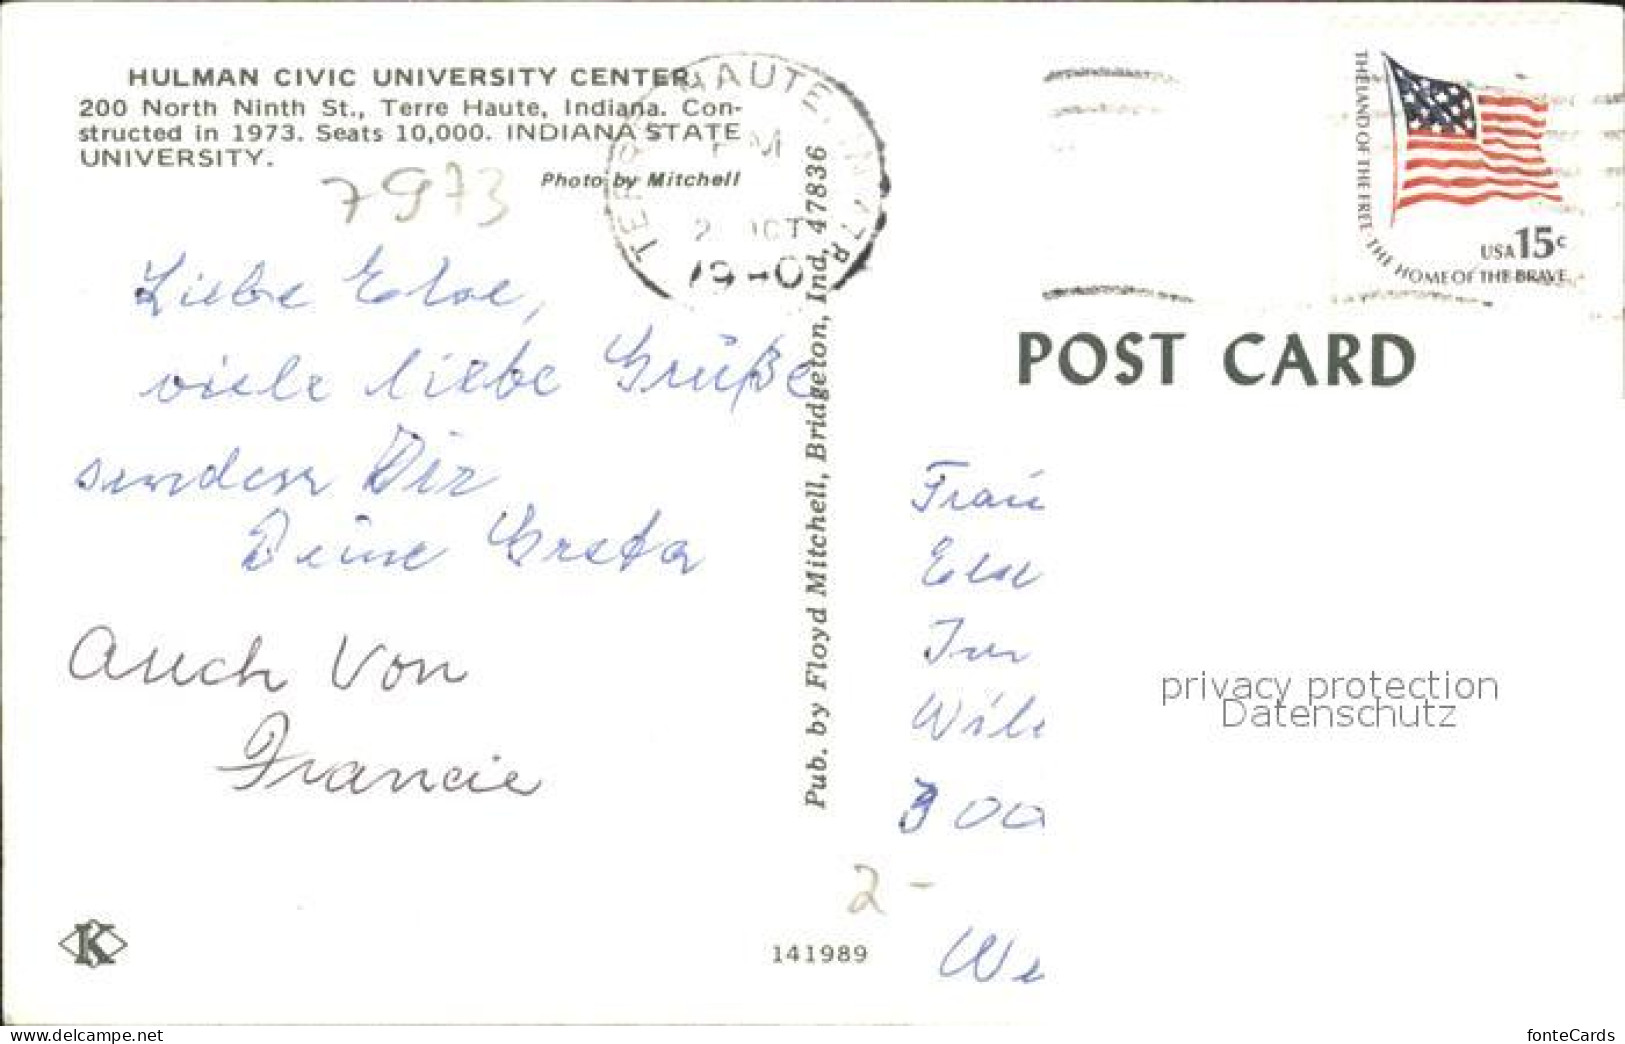 HULMAN CIVIC UNIVERSITY CENTER,
200 North Ninth St., Terre Haute, Indiana. Con-
structed in 1973. Seats 10,000. INDIANA STATE
UNIVERSITY.
Photo by Mitchell
7973
Liebe Else,
viele liebe Grüße
senden Dir
Deine Greta
Auch Von
Francie
K
141989
Pub. by Floyd Mitchell, Bridgeton, Ind. 47836
TERRE HAUTE, IN 478
PM
OCT
THE LAND OF THE FREE · THE HOME OF THE BRAVE
USA 15c
POST CARD
Frau
Else
2 -
privacy protection
Datenschutz
www.delcampe.net
fonteCards